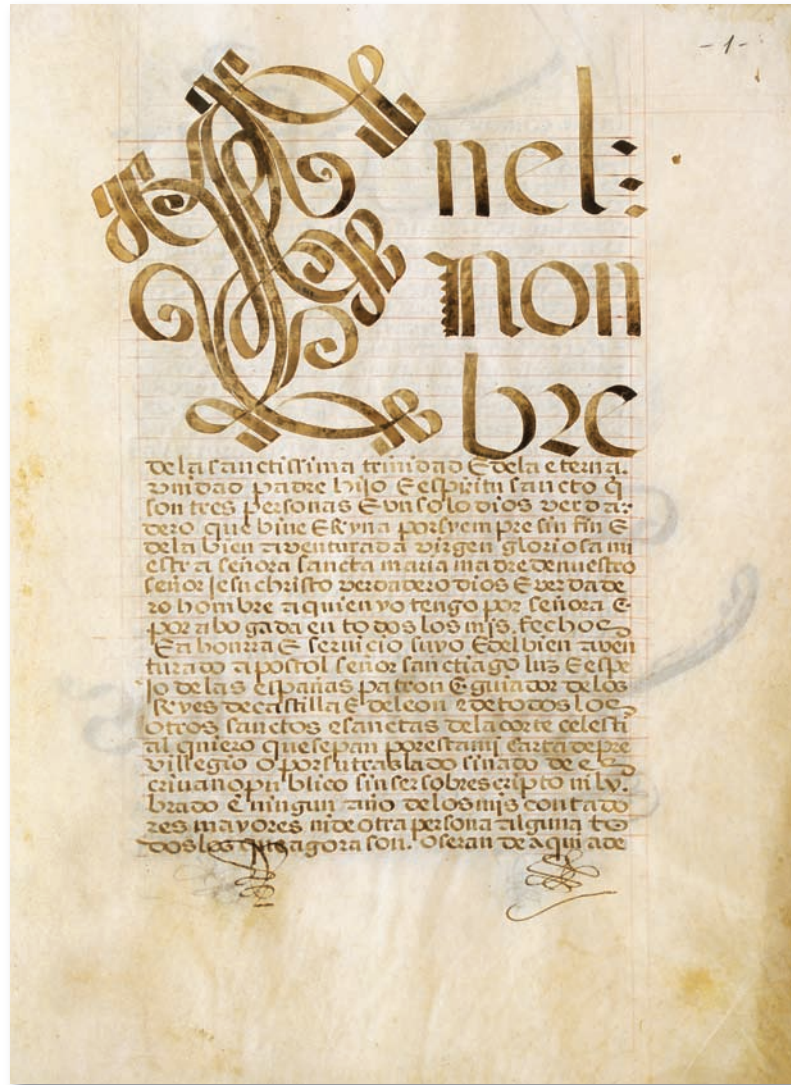 - 1 -
Enel:
non
bre
dela sanctissima trinidad E dela eterna.
vnidad padre hijo E espiritu sancto q̃
son tres personas E vn solo dios verda-
dero que biue E Reyna por syempre sin fin E
dela bien auenturada virgen gloriosa nu
estra señora sancta maria madre de nuestro
señor Jesuchristo verdadero dios E verdade
ro hombre a quien yo tengo por señora E-
por abogada en todos los mis. fechos
E a honrra E seruicio suyo E del bien auen
turado apostol señor sanctiago luz E espe
jo delas españas patron E guiador delos
Reyes de castilla E de leon E de todos los
otros sanctos E sanctas dela corte celesti
al quiero que sepan por esta mi carta de pre
villegio o por su traslado sinado de es
criuano publico sin ser sobrescripto ni ly.
brado E ningun año delos mis contado
res mayores ni de otra persona alguna to
dos los que agora son. O seran de aqui ade